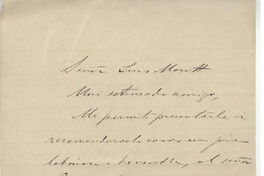 Señor Luis Montt
Mui estimado amigo,
Me permito presentarle i
recomendarle como un jóven
laborioso i honorable, al señor